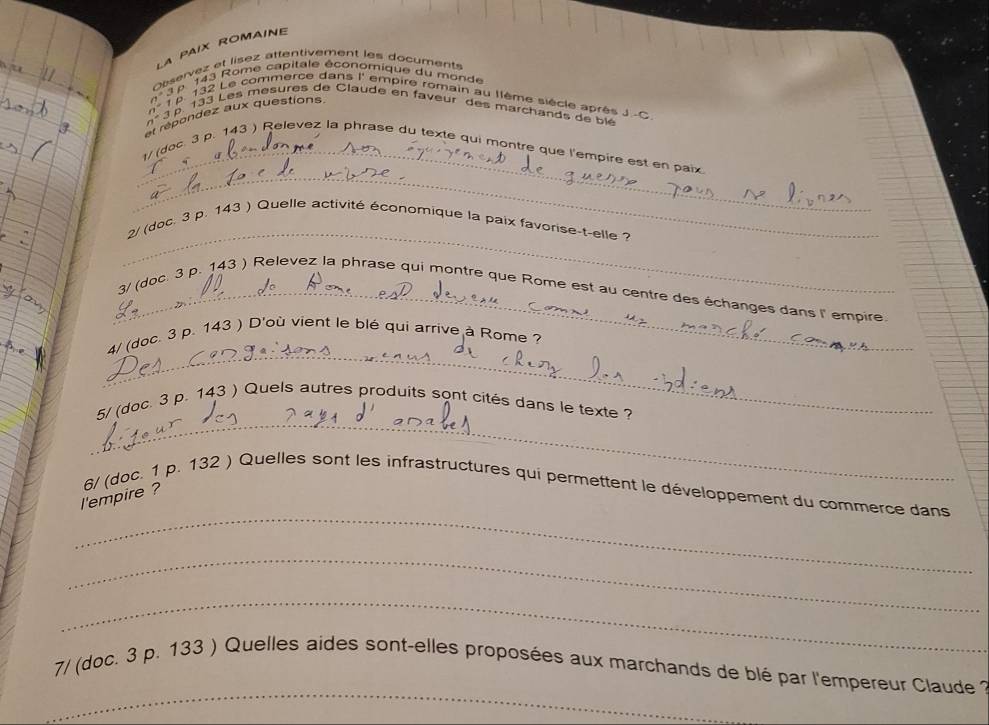 LA PAIX ROMAINE
Observez et lisez attentivement les documents
n° 3 p. 143 Rome capitale économique du monde
n° 1 p. 132 Le commerce dans l' empire romain au IIème siècle après J.-C.
n° 3 p. 133 Les mesures de Claude en faveur des marchands de blé
et répondez aux questions.
1/ (doc. 3 p. 143 ) Relevez la phrase du texte qui montre que l'empire est en paix.
a abandonné son équipement de guerre pour se livrer
à la joie de vivre.
2/ (doc. 3 p. 143 ) Quelle activité économique la paix favorise-t-elle ?
3/ (doc. 3 p. 143 ) Relevez la phrase qui montre que Rome est au centre des échanges dans l' empire.
La ville de Rome est devenu comme un marché commun
4/ (doc. 3 p. 143 ) D'où vient le blé qui arrive à Rome ?
Des cargaisons venus de chez les indiens
5/ (doc. 3 p. 143 ) Quels autres produits sont cités dans le texte ?
des pays d' arabes
6/ (doc. 1 p. 132 ) Quelles sont les infrastructures qui permettent le développement du commerce dans
l'empire ?
7/ (doc. 3 p. 133 ) Quelles aides sont-elles proposées aux marchands de blé par l'empereur Claude ?